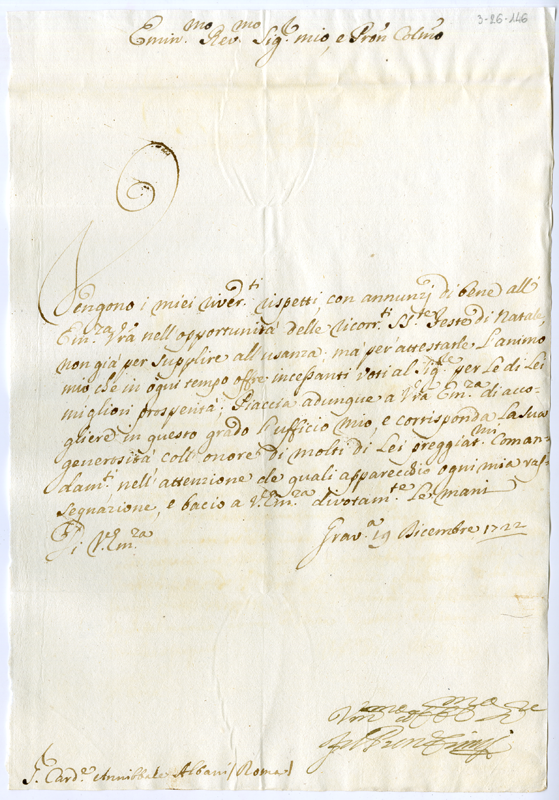 3-26-146
Emin.mo Rev.mo Sig.r mio, e Pron Colmo
Vengono i miei river.ti rispetti, con annunzj di bene all'
Em.za Vra nell'opportunità delle ricorr.ti S.te Feste di Natale,
non già per supplire all'usanza; mà per attestarle L'animo
mio che in ogni tempo offre incessanti voti al Sig.re per Le di Lei
migliori prosperità; Piaccia adunque a Vra Em.za di acco-
gliere in questo grado L'ufficio mio, e corrisponda La sua
generosità coll'onore di molti di Lei preggiat.mi Coman-
dam.ti nell'attenzione de quali apparecchio ogni mia ras-
segnazione, e bacio a V.Em.za divotam.te Le mani
Di V.Em.za Grav.a 19 Dicembre 1722
S. Card.e Annibale Albani (Roma)